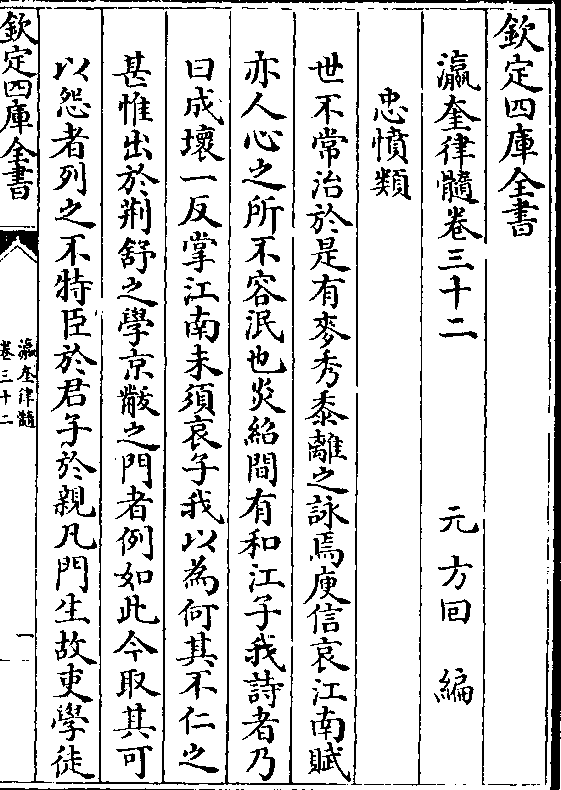 欽定四庫全書
瀛奎律髓卷三十二　元　方回　編
忠憤類
世不常治於是有麥秀黍離之詠焉庾信哀江南賦
亦人心之所不容泯也炎紹間有和江子我詩者乃
曰成壞一反掌江南未須哀子我以為何其不仁之
甚惟出於荆舒之學京黻之門者例如此今取其可
以怨者列之不特臣於君子於親凡門生故吏學徒
欽定四庫全書
瀛奎律髓
卷三十二
一